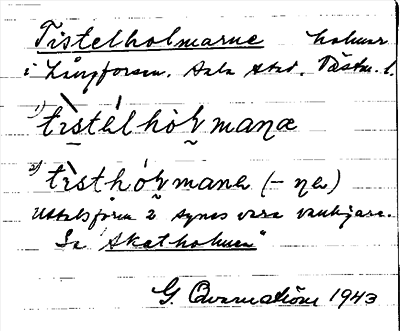 Tistelholmarne holmar
i Långforsen. Sala stad. Västm. l.
1) tìstélhòɫ̬maɳæ
2) tìsthóɫ̬mana (– ɳa)
Uttalsform 2 synes vara vanligare.
Se "Skatholmen"
G. Qvarnström 1943